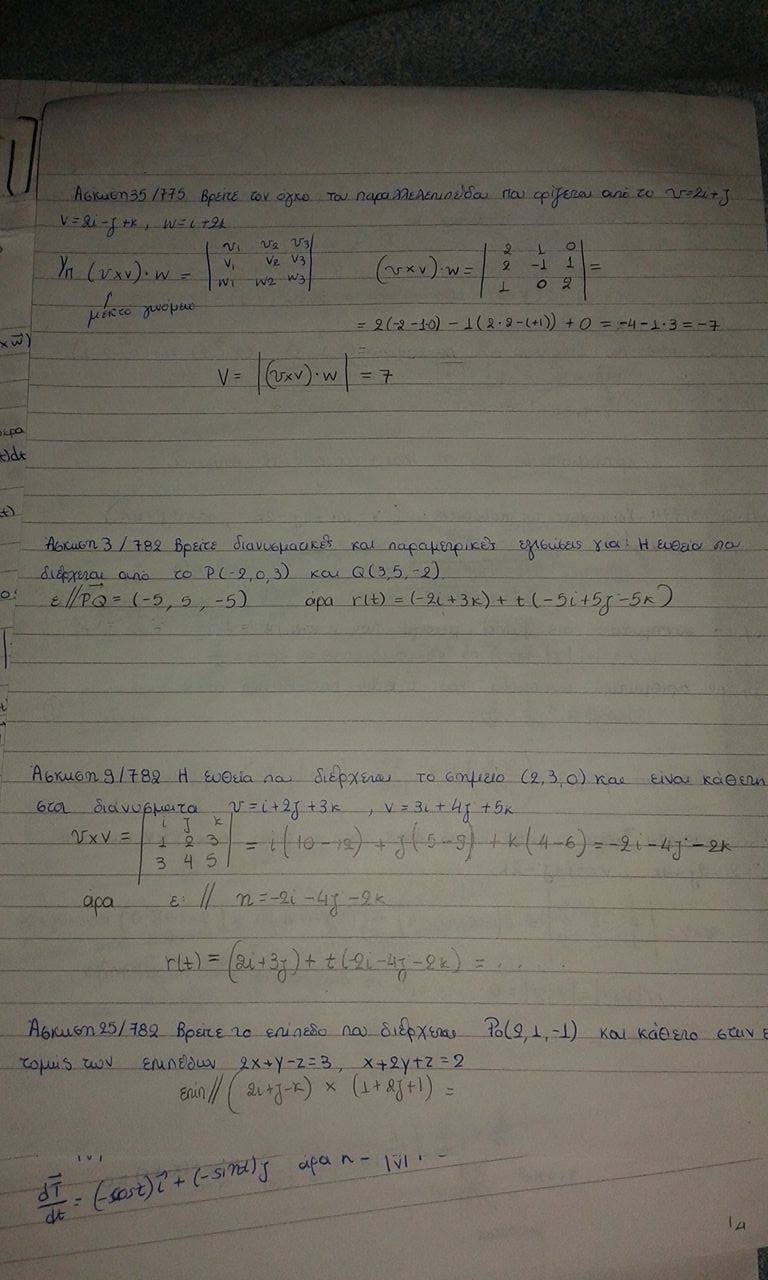 Άσκηση 35/775 Βρείτε τον όγκο του παραλληλεπιπέδου που ορίζεται από το υ=2i+j
v=2i-j+k, w=i+2k
(υxv)·w = | υ1 υ2 υ3 | (υxv)·w = | 2 1 0 |
| v1 v2 v3 | | 2 -1 1 | =
| w1 w2 w3 | | 1 0 2 |
μεικτό γινόμενο
= 2(-2-1·0) - 1(2·2-(+1)) + 0 = -4-1·3 = -7
V = |(υxv)·w| = 7
Άσκηση 3/782 Βρείτε διανυσματικές και παραμετρικές εξισώσεις για: Η ευθεία που
διέρχεται από το P(-2,0,3) και Q(3,5,-2).
ε//PQ = (-5, 5, -5) άρα r(t) = (-2i+3k) + t(-5i+5j-5k)
Άσκηση 9/782 Η ευθεία που διέρχεται το σημείο (2,3,0) και είναι κάθετη
στα διανύσματα υ=i+2j+3k , v=3i+4j+5k
υxv = | i j k |
| 1 2 3 | = i(10-12) + j(5-9) + k(4-6) = -2i-4j-2k
| 3 4 5 |
άρα ε: // n=-2i-4j-2k
r(t) = (2i+3j) + t(-2i-4j-2k) = ...
Άσκηση 25/782 Βρείτε το επίπεδο που διέρχεται P0(2,1,-1) και κάθετο στην ε
τομής των επιπέδων 2x+y-z=3, x+2y+z=2
επιπ//(2i+j-k) × (1+2j+1) =
dT/dt = (-cost)i + (-sint)j άρα n = |v|